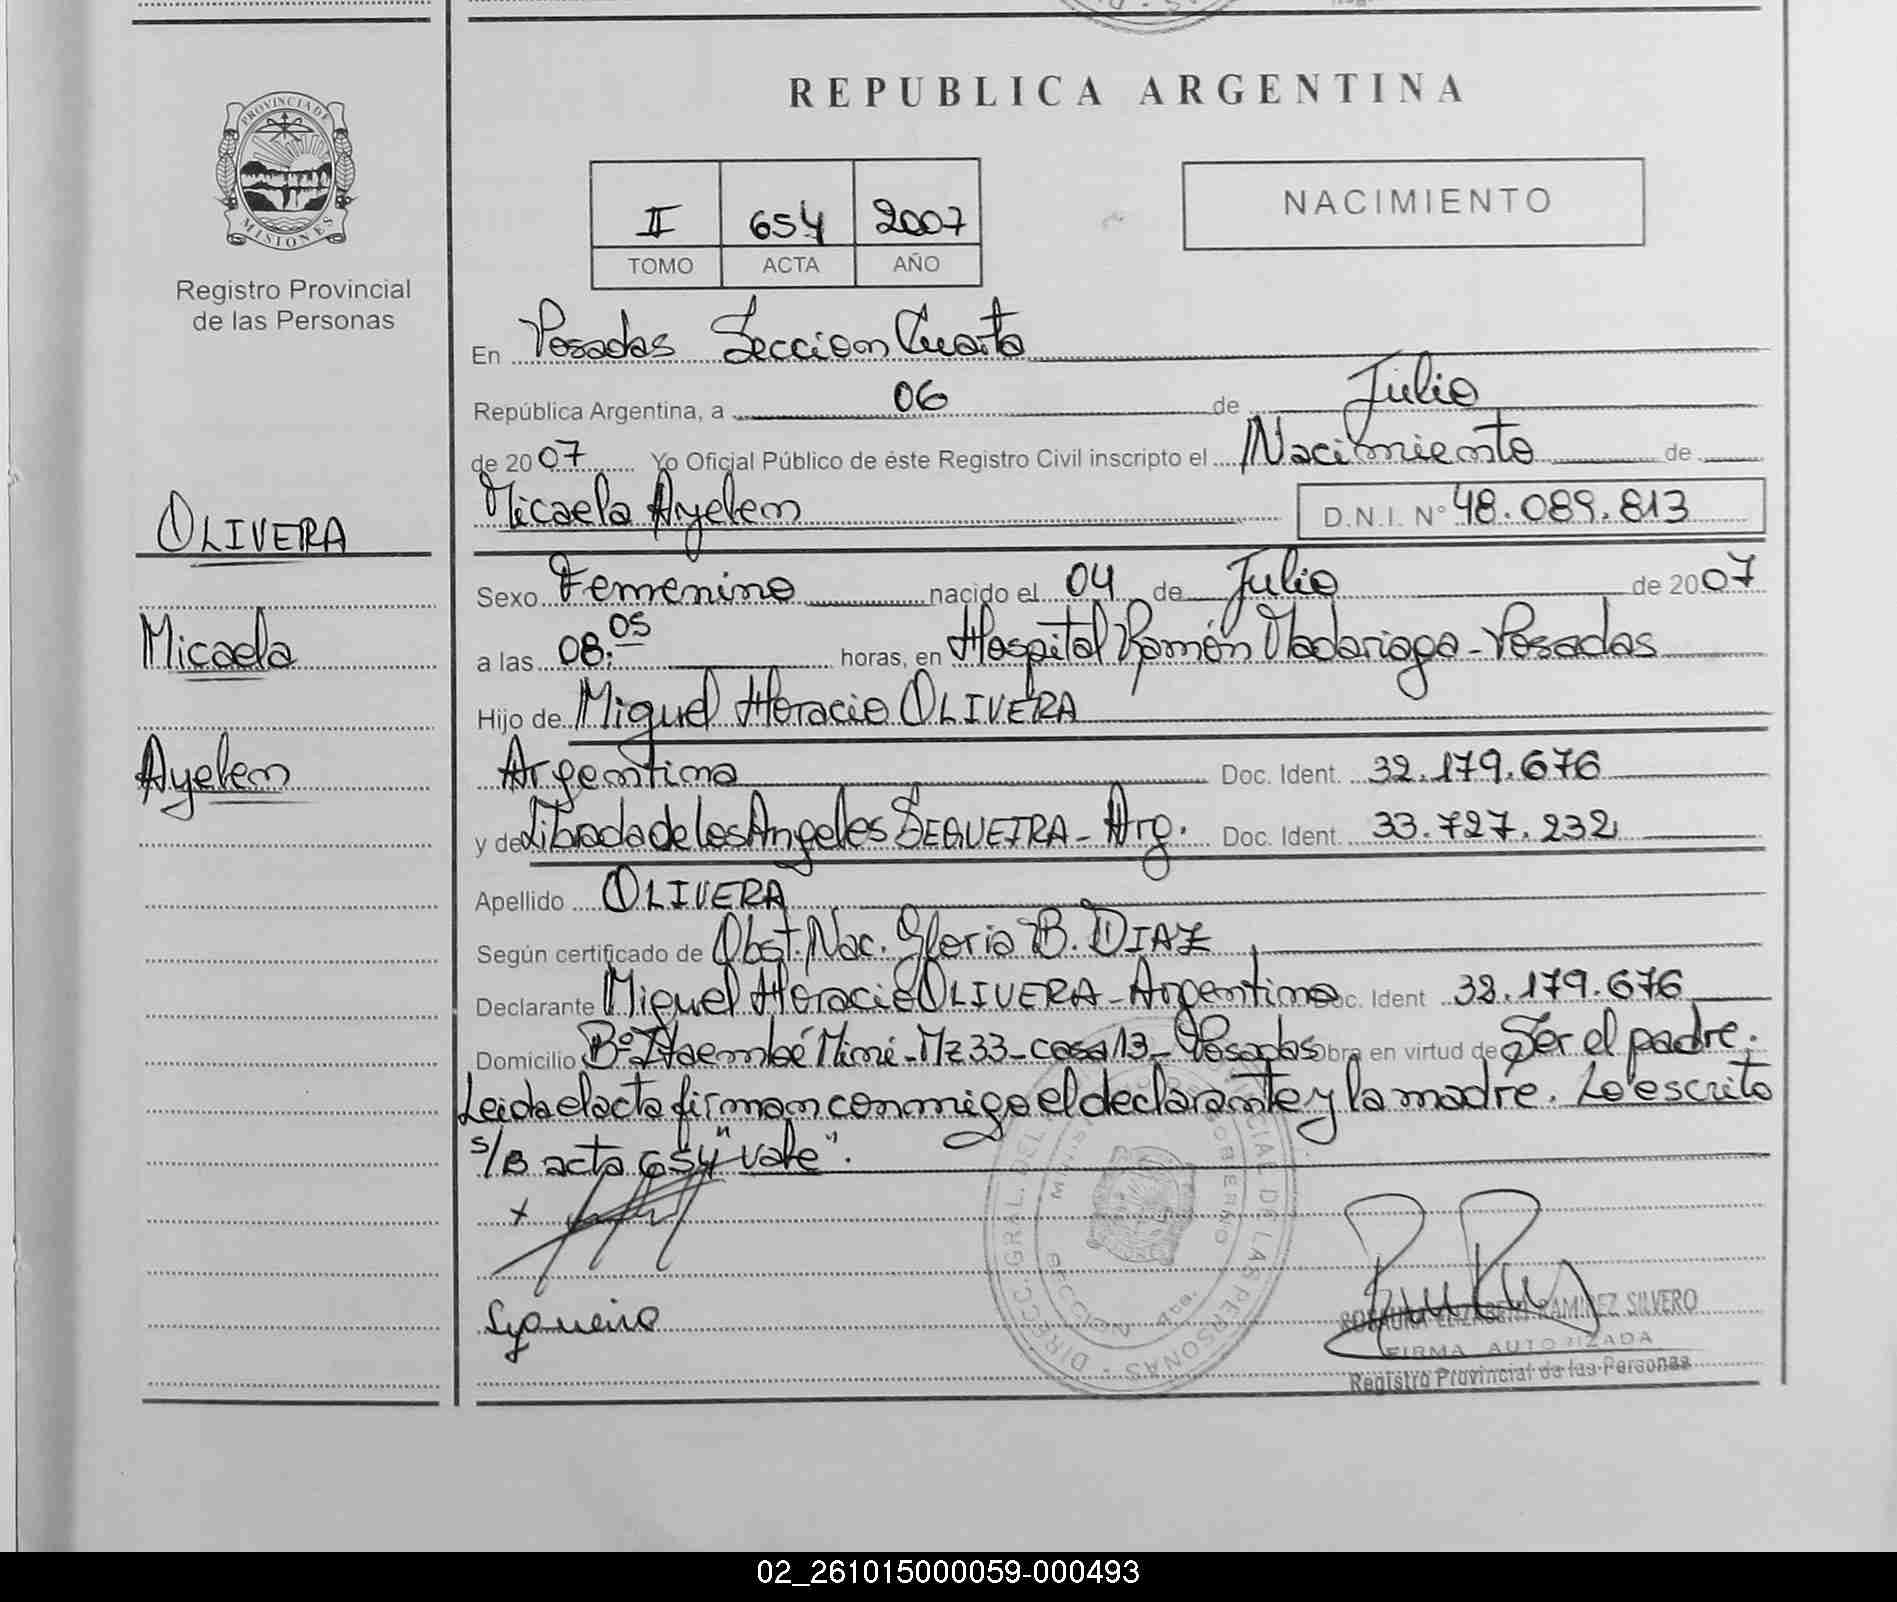 REPUBLICA ARGENTINA
PROVINCIA DE
MISIONES
Registro Provincial
de las Personas
II 654 2007
TOMO ACTA AÑO
NACIMIENTO
En Posadas Seccion Cuarta
República Argentina, a 06 de Julio
de 2007 Yo Oficial Público de éste Registro Civil inscripto el Nacimiento de
Micaela Ayelem D.N.I. N° 48.089.813
OLIVERA
Micaela
Ayelem
Sexo Femenino nacido el 04 de Julio de 2007
a las 08:05 horas, en Hospital Ramón Madariaga - Posadas
Hijo de Miguel Horacio OLIVERA
Argentina Doc. Ident. 32.179.676
y de Librada de los Angeles SEQUEIRA - Arg. Doc. Ident. 33.727.232
Apellido OLIVERA
Según certificado de Obst. Nac. Gloria B. DIAZ
Declarante Miguel Horacio OLIVERA - Argentino Doc. Ident 32.179.676
Domicilio B° Itaembé Miní - Mz 33 - casa 13 - Posadas Obra en virtud de Ser el padre.
Leida el acta firman conmigo el declarante y la madre. Lo escrito
s/B acta 654 "vale".
x
Sequeira
DIRECC. GRAL. DEL PROVINCIAL DE LAS PERSONAS
GOBIERNO
ELIZABETH RAMIREZ SILVERO
FIRMA AUTORIZADA
Registro Provincial de las Personas
02_261015000059-000493